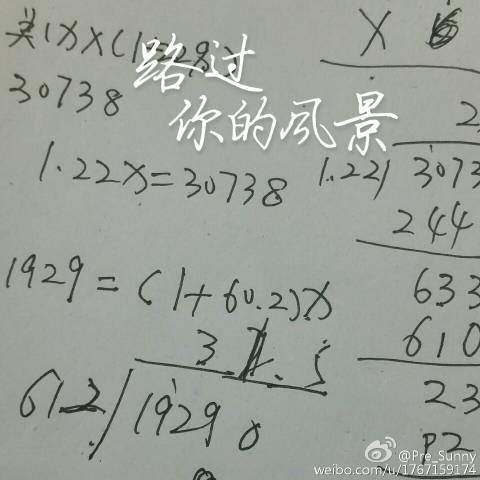 路过
你的风景
30738
1.22x=30738
1929=(1+60.2)x
3 . 5
612/19290
X
2
1.22) 3073
244
633
610
23
@Pre_Sunny
weibo.com/u/1767159174